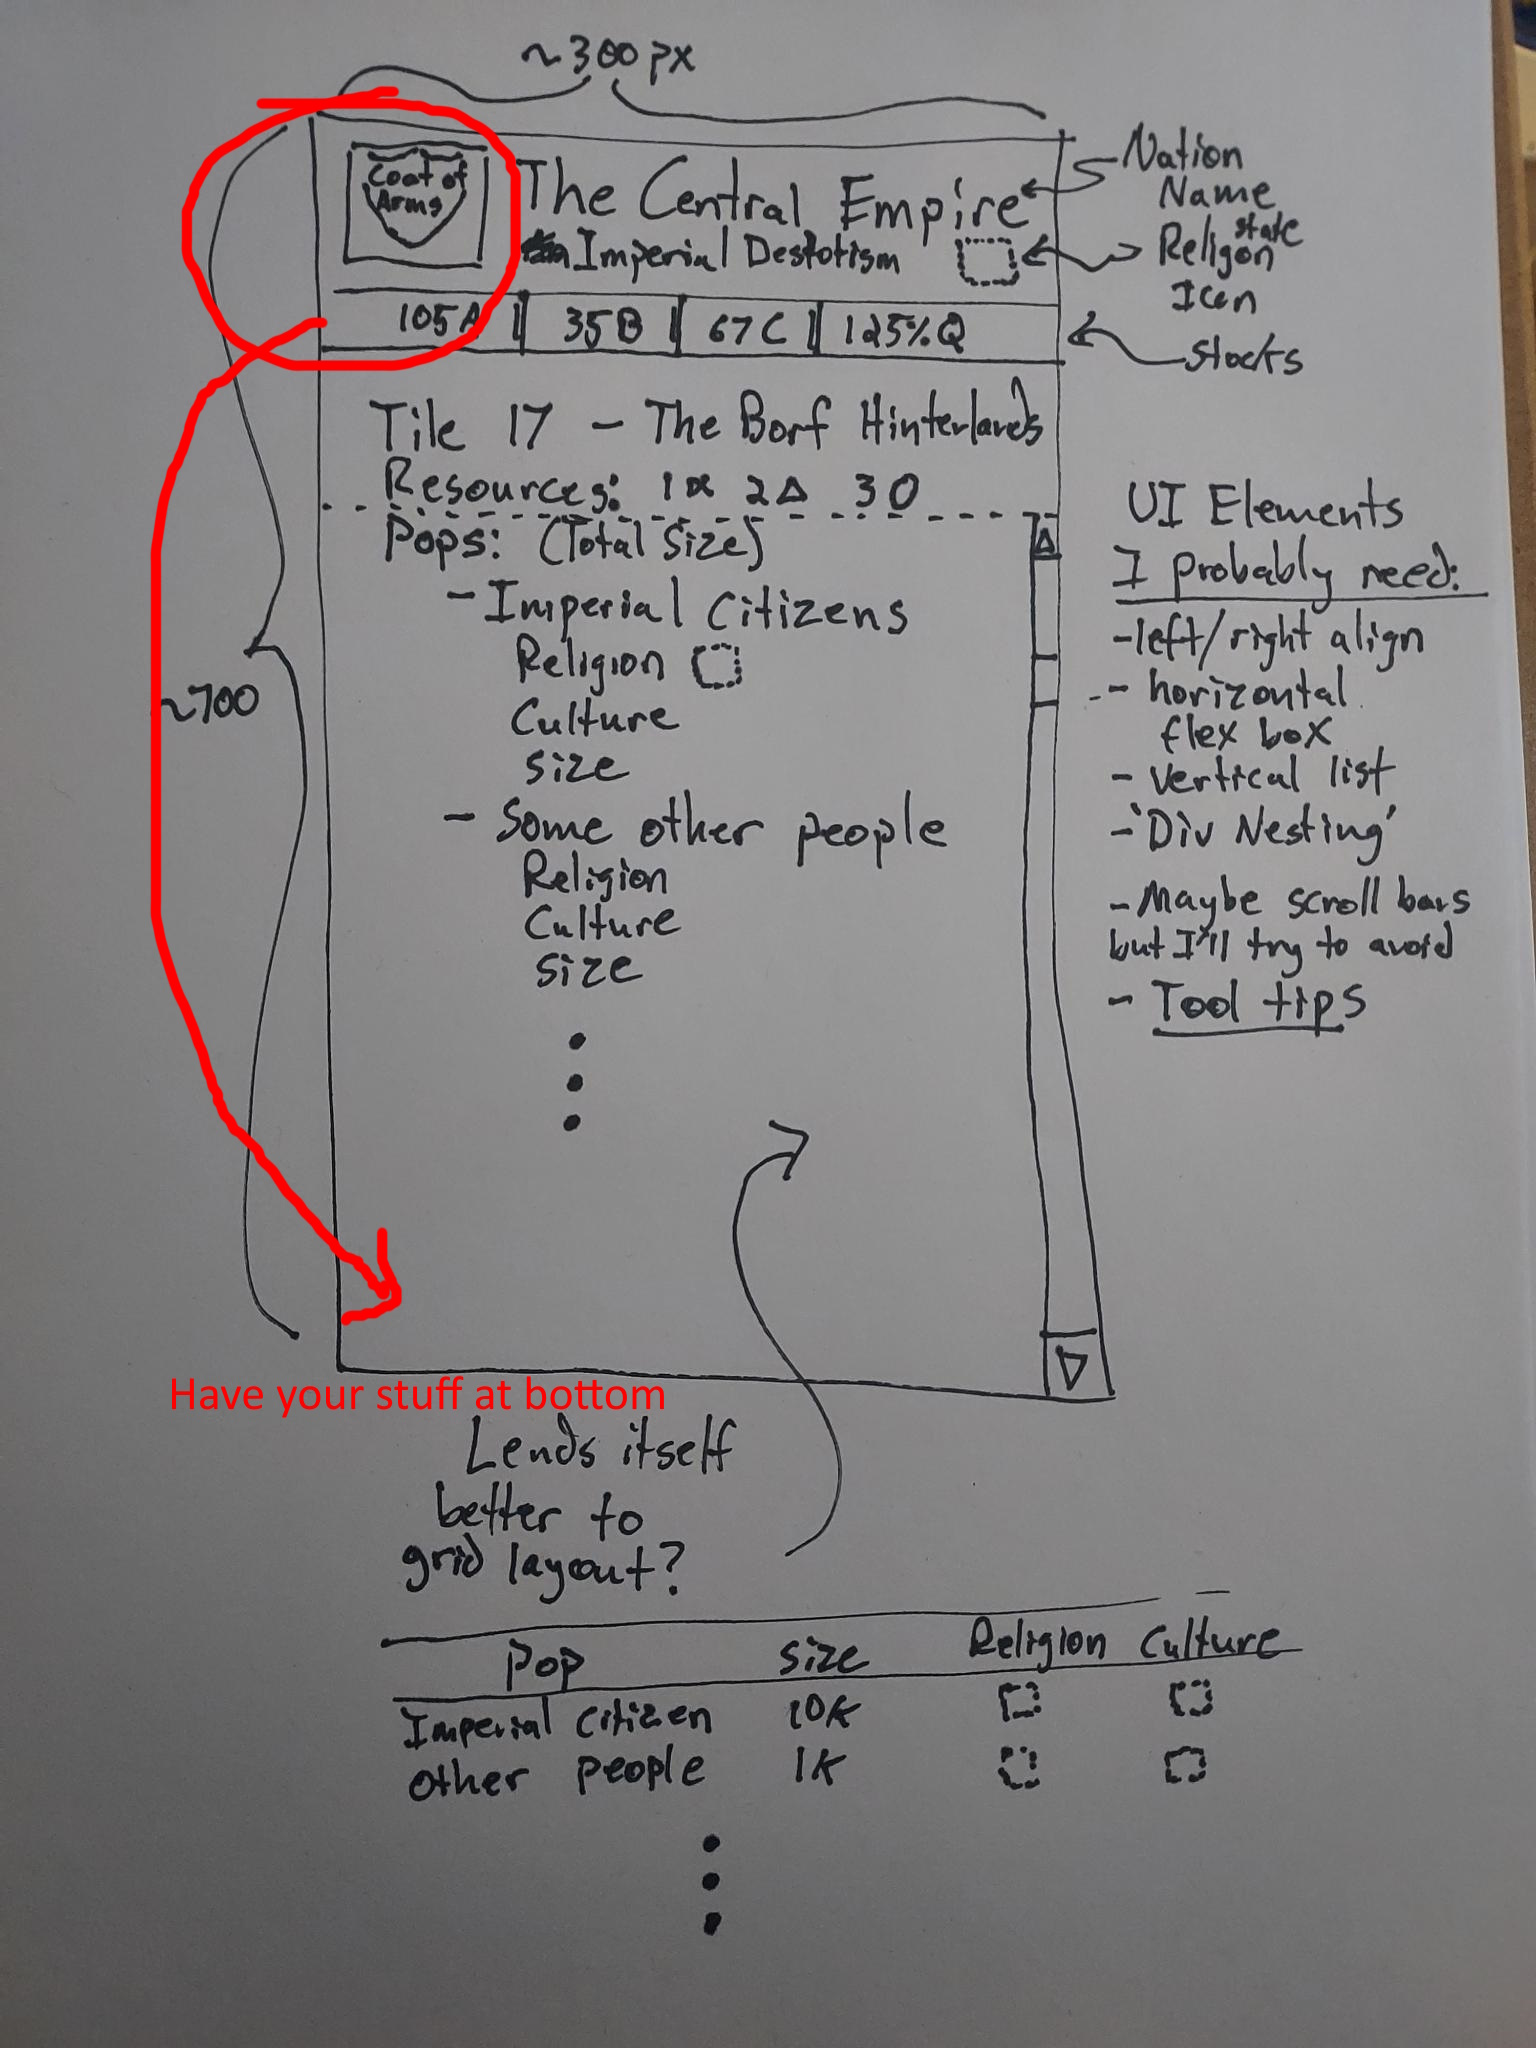 ~300px
Coat of
Arms
The Central Empire
Imperial Destotism
Nation
Name
state
Religon
Icon
105A 35B 67C 125%Q
Stocks
Tile 17 - The Borf Hinterlands
Resources: 1¤ 2Δ 3O
Pops: (Total Size)
- Imperial Citizens
Religion
Culture
size
- Some other people
Religion
Culture
size
~700
UI Elements
I probably need:
- left/right align
- horizontal
flex box
- vertical list
- 'Div Nesting'
- Maybe scroll bars
but I'll try to avoid
- Tool tips
Have your stuff at bottom
Lends itself
better to
grid layout?
Pop size Religion Culture
Imperial citizen 10K
other people 1K